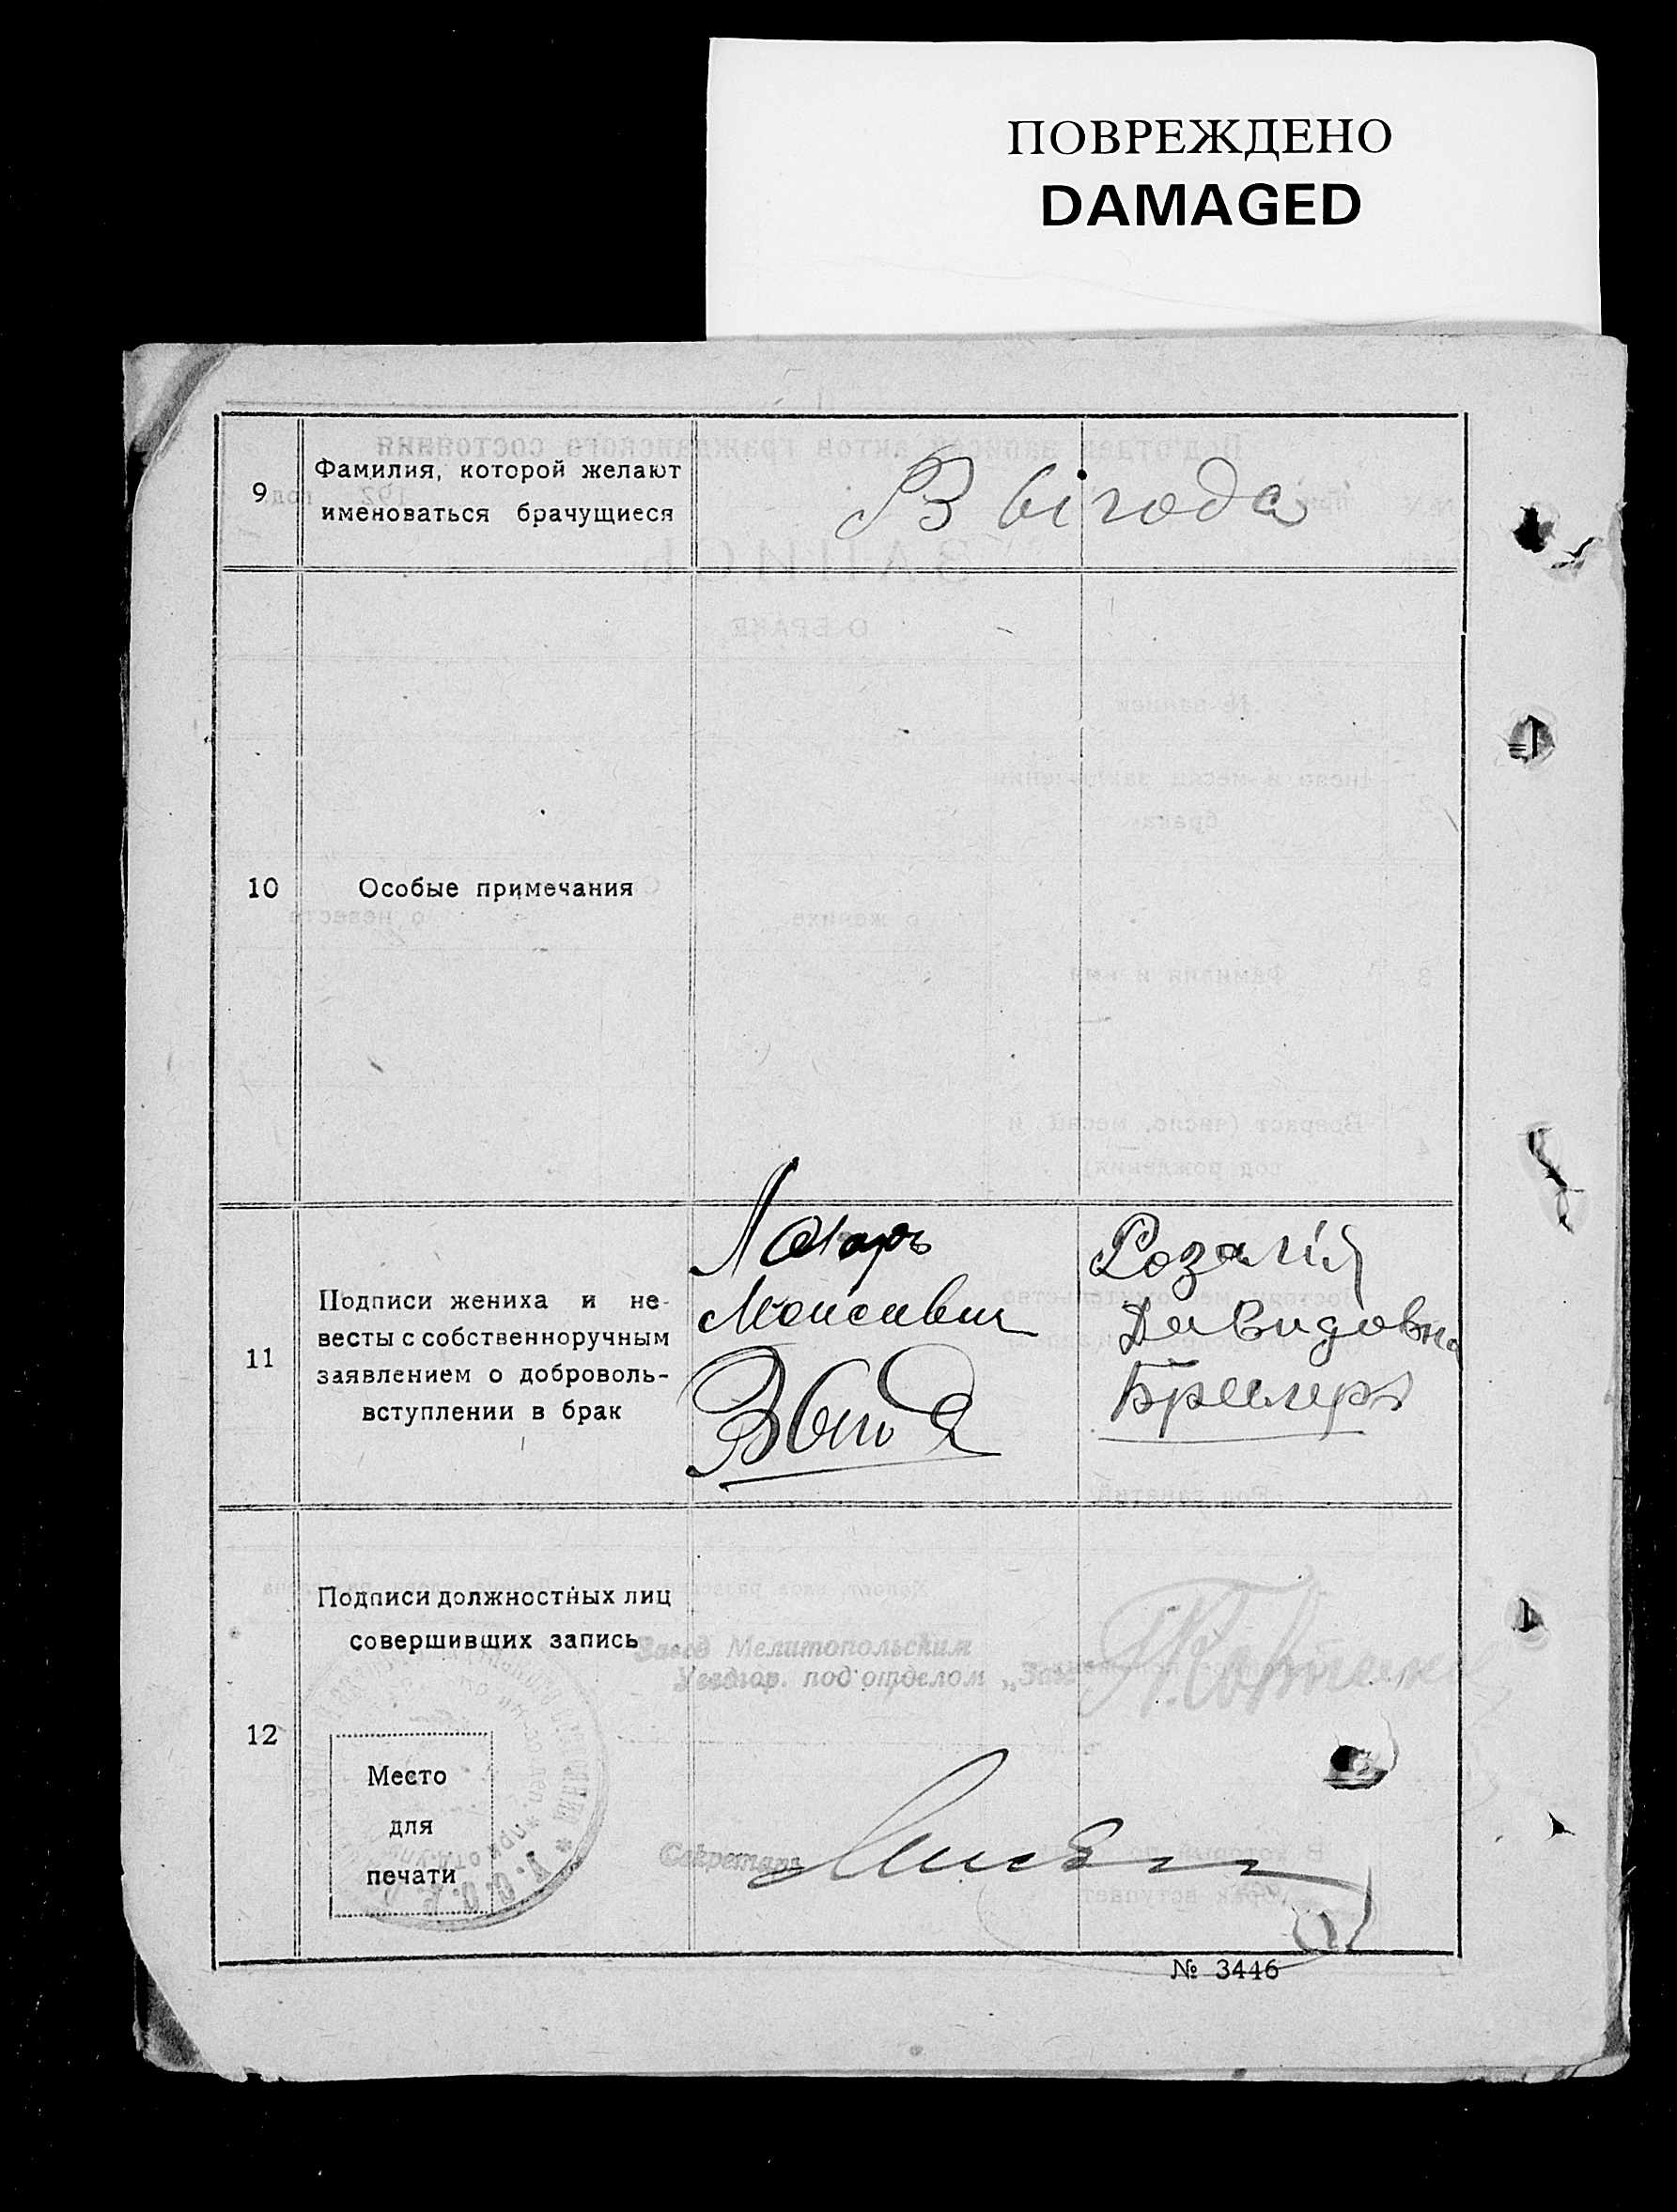 ПОВРЕЖДЕНО
DAMAGED
9
Фамилия, которой желают
именоваться брачущиеся
Выгода
10
Особые примечания
11
Подписи жениха и не-
весты с собственноручным
заявлением о доброволь-
вступлении в брак
Лазарь
Моисеевич
Розалія
Давидовна
Бремеръ
12
Подписи должностных лиц
совершивших запись
Завед Мелитопольским
Уездгор. под'отделом „Загс"
Место
для
печати
Секретарь
№ 3446